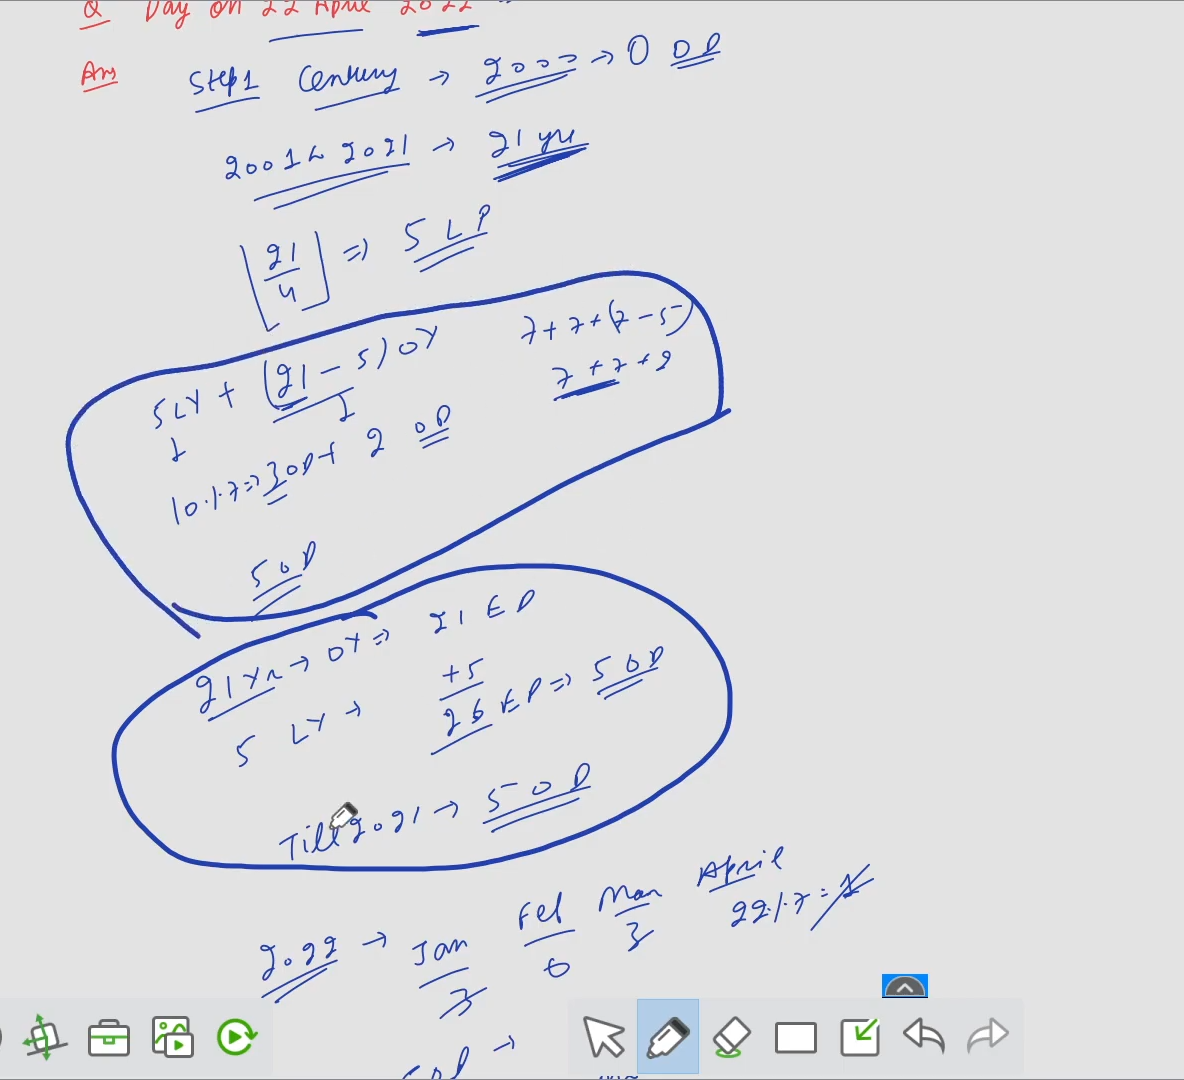 Q Day on 22 April 2022
Ans Step1 Century → 2000 → 0 OD
2001 to 2021 → 21 yr
[21/4] => 5 LP
5LY + (21-5) OY 7+7+(7-5)
7+7+2
10%7=>3OD+ 2 OD
5 OD
21Yr → OY => 21 ED
5 LY → +5
26 ED => 5 OD
Till 2021 → 5 OD
2022 → Jan Feb Mar April
3 0 3 22%7=1